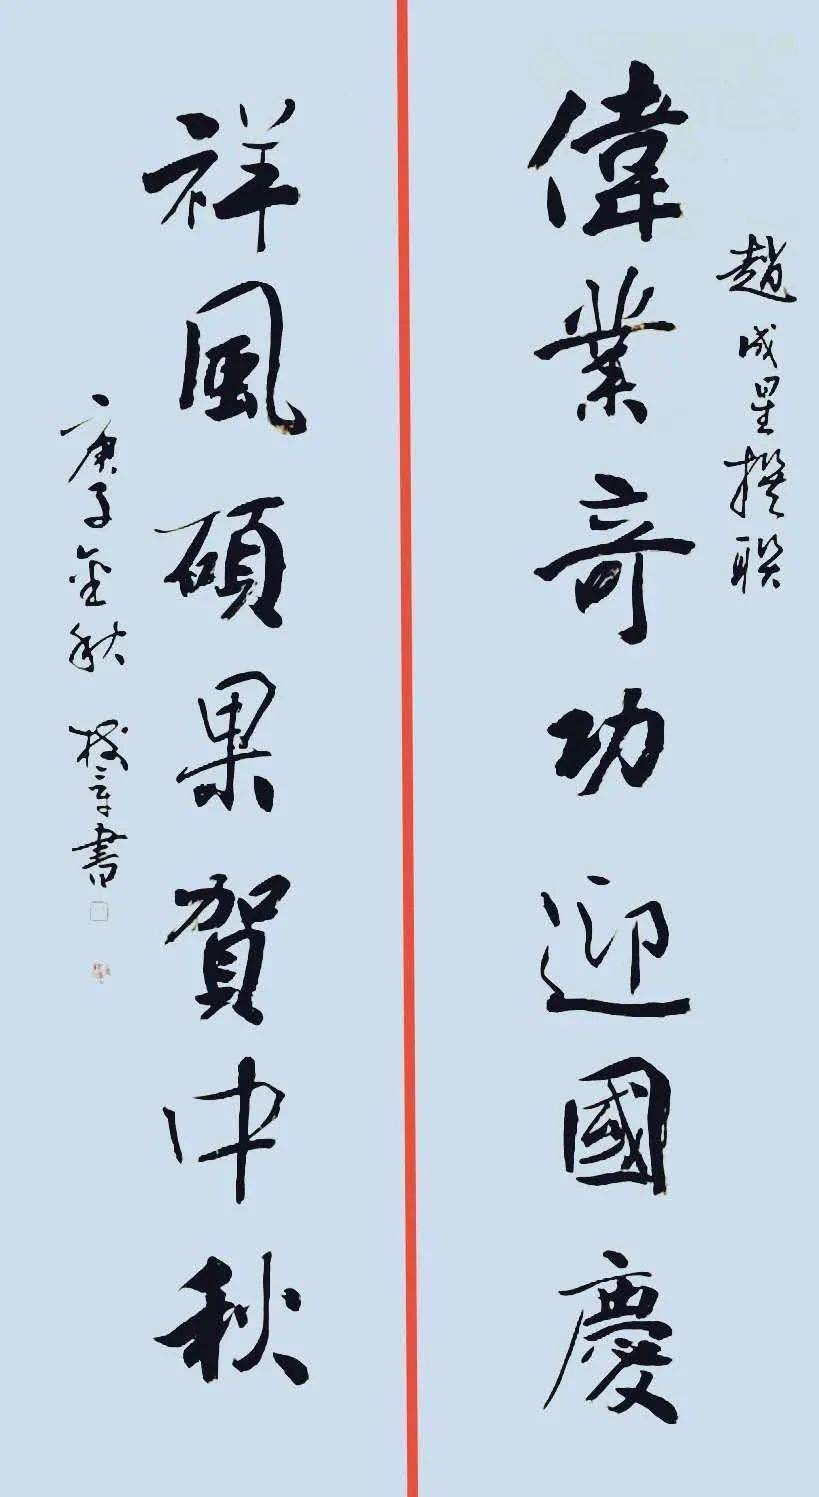 趙成星撰联
偉業奇功迎國慶
祥風碩果賀中秋
庚子金秋 章書